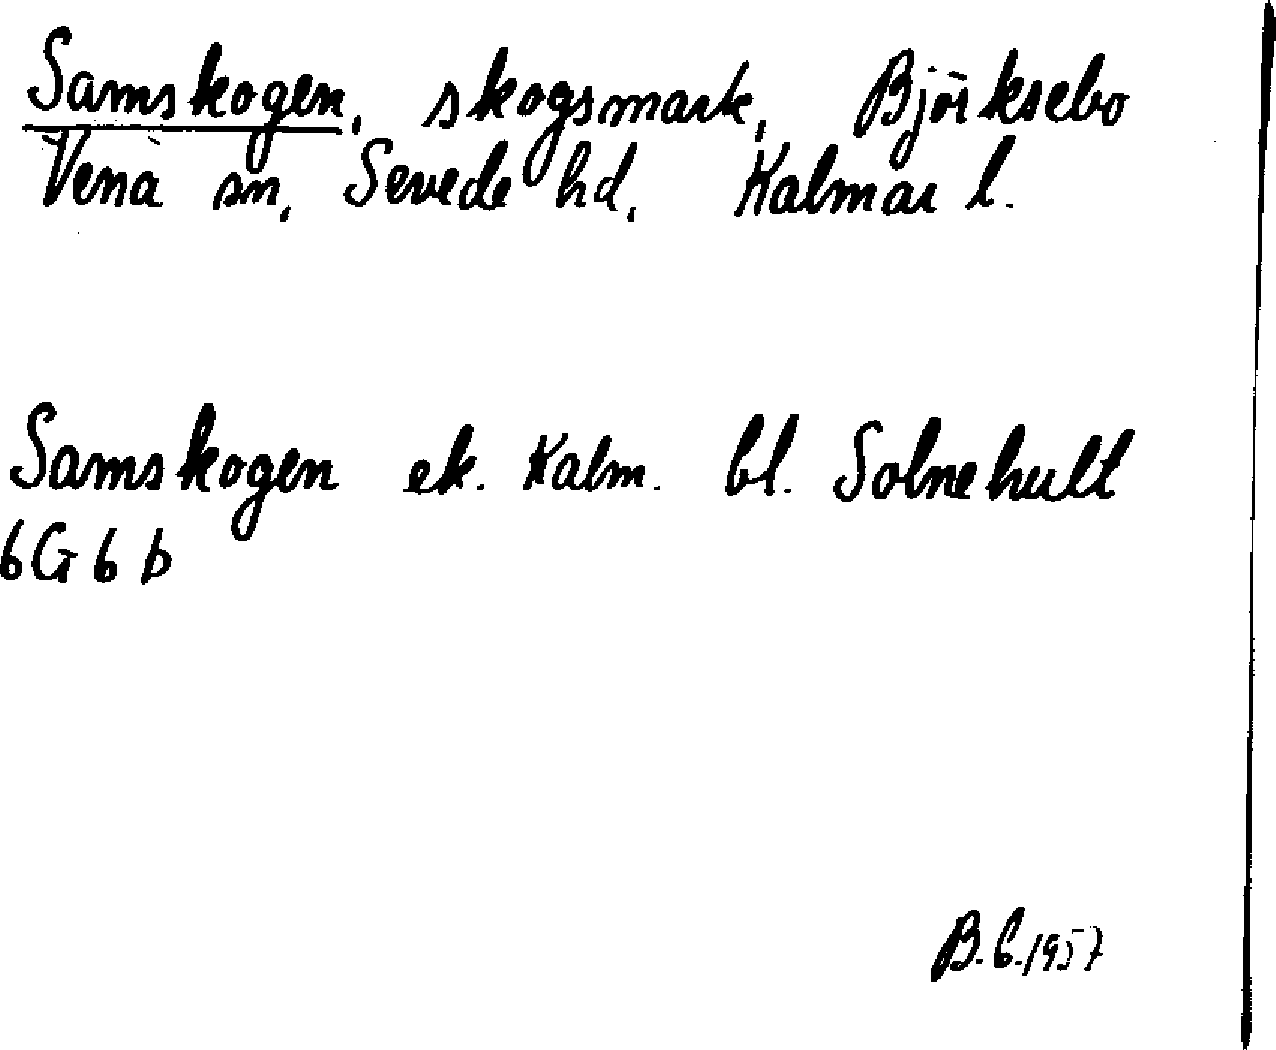 Samskogen, skogsmark, Björksebo
Vena sn, Sevede hd, Kalmar l.
Samskogen ek. Kalm. bl. Solnehult
6G 6 b
B.C. 1957